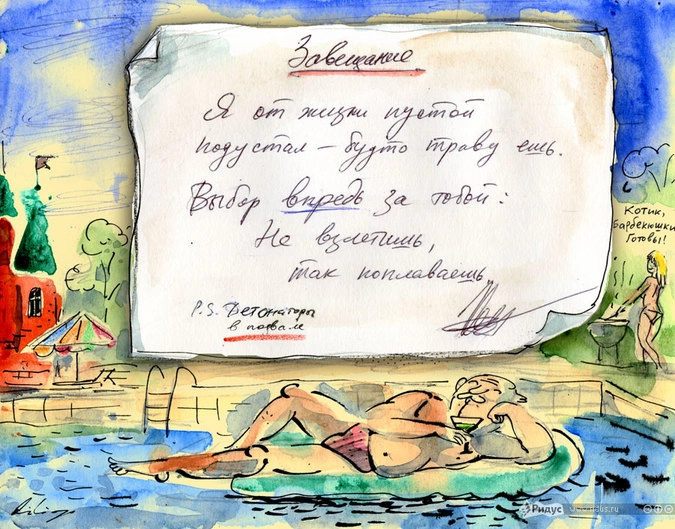 Завещание
Я от жизни пустой
подустал – будто траву ешь.
Выбор впредь за тобой:
Не взлетишь,
так поплаваешь
P.S. Детонаторы
в подвале
Котик,
Барбекюшки
Готовы!
Ридус